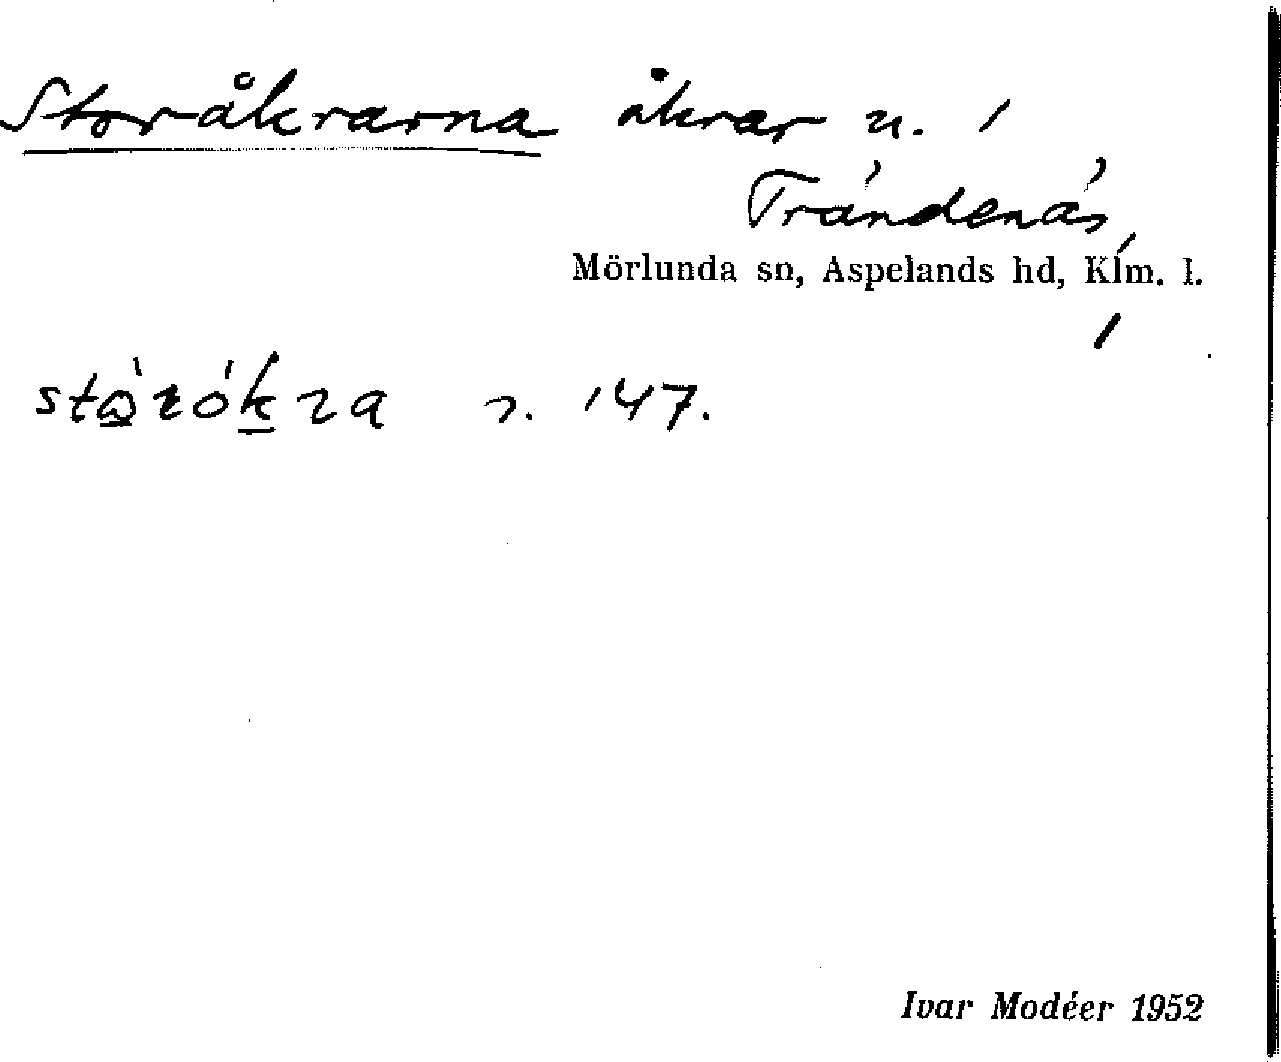 Storåkrarna åkrar u. 1
Trändenäs,
Mörlunda sn, Aspelands hd, Klm. l.
s. 147.
Ivar Modéer 1952